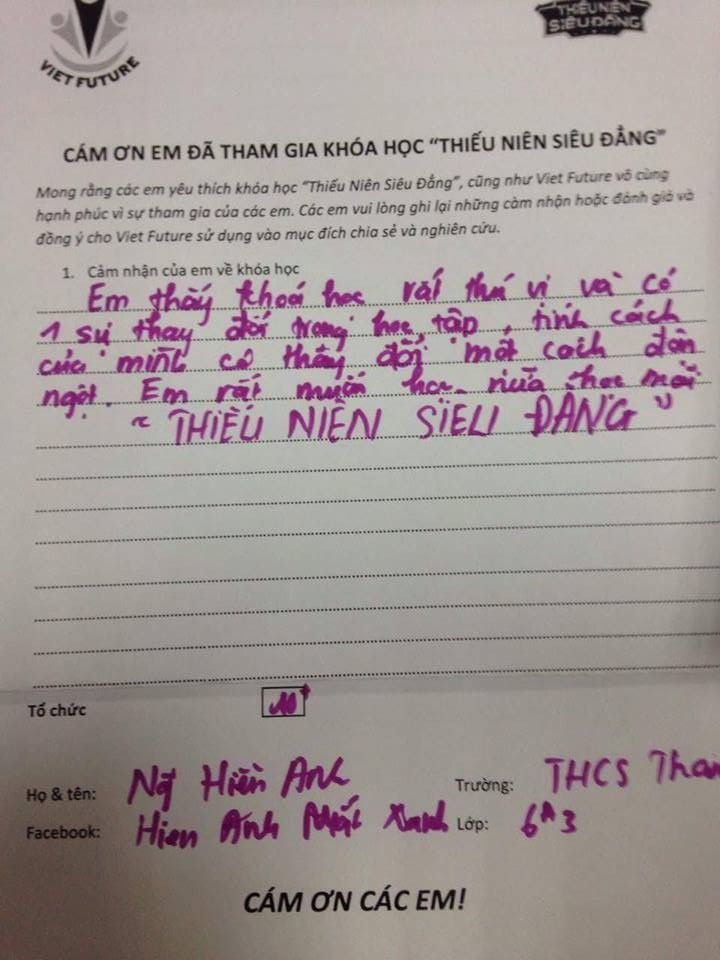 VIET FUTURE
THIẾU NIÊN
SIÊU ĐẲNG
CÁM ƠN EM ĐÃ THAM GIA KHÓA HỌC “THIẾU NIÊN SIÊU ĐẲNG”
Mong rằng các em yêu thích khóa học “Thiếu Niên Siêu Đẳng”, cũng như Viet Future vô cùng
hạnh phúc vì sự tham gia của các em. Các em vui lòng ghi lại những cảm nhận hoặc đánh giá và
đồng ý cho Viet Future sử dụng vào mục đích chia sẻ và nghiên cứu.
1. Cảm nhận của em về khóa học
Em thấy khoá học rất thú vị và có
1 sự thay đổi trong học tập, tính cách
của mình có thây đổi một cách đôn
ngột. Em rất muốn học nữa học mãi
“THIẾU NIÊN SIÊU ĐẲNG”
Tổ chức 10+
Họ & tên: Hiền Anh Trường: THCS Than
Facebook: Hien Anh Mắt Xanh Lớp: 6A3
CÁM ƠN CÁC EM!